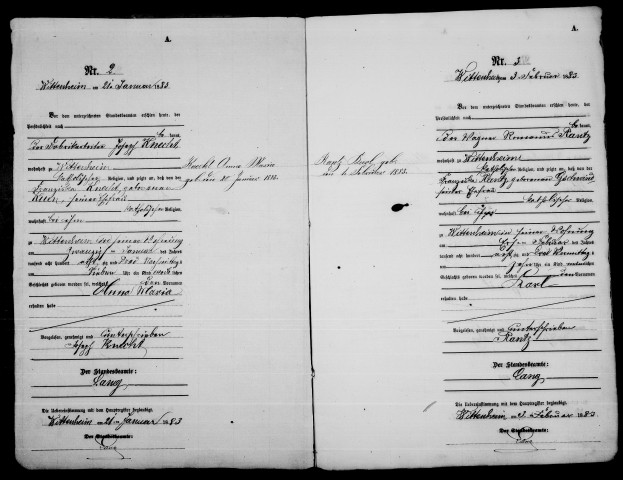 A.
Nr. 2
Wittenheim am 21 Januar 1883
Vor dem unterzeichneten Standesbeamten erschien heute, der
Persönlichkeit nach
kannt,
Der Fabrikarbeiter Joseph Knecht
wohnhaft zu Wittenheim
katholischer Religion, und zeigte an, daß von der
Franziska Knecht, geborenen
seiner Ehefrau
katholischer Religion,
wohnhaft bei ihm
zu Wittenheim in seiner Wohnung
Januar des Jahres
tausend acht hundert achtzig und drei Nachmittags
um Uhr ein Kind weiblichen
Geschlechts geboren worden sei, welches Vornamen
Anna Maria
erhalten habe
Vorgelesen, genehmigt und unterschrieben
Joseph Knecht
Der Standesbeamte:
Lang
Die Uebereinstimmung mit dem Hauptregister beglaubigt.
Wittenheim am 21 Januar 1883
Der Standesbeamte:
Lang
Knecht Anna Maria
geb. am 20 Januar 1883.
A.
Nr. 3
Wittenheim am 3 Februar 1883
Vor dem unterzeichneten Standesbeamten erschien heute, der
Persönlichkeit nach
kannt,
Der Wagner Romanus Rantz
wohnhaft zu Wittenheim
katholischer Religion, und zeigte an, daß von der
Franziska Rantz, geborenen
seiner Ehefrau
katholischer Religion,
wohnhaft bei ihm
zu Wittenheim in seiner Wohnung
Februar des Jahres
tausend acht hundert achtzig und drei Vormittags
um Uhr ein Kind männlichen
Geschlechts geboren worden sei, welches den Vornamen
Karl
erhalten habe
Vorgelesen, genehmigt und unterschrieben
Rantz
Der Standesbeamte:
Lang
Die Uebereinstimmung mit dem Hauptregister beglaubigt.
Wittenheim am Februar 1883
Der Standesbeamte:
Lang
Karl geb.
am Februar 1883.